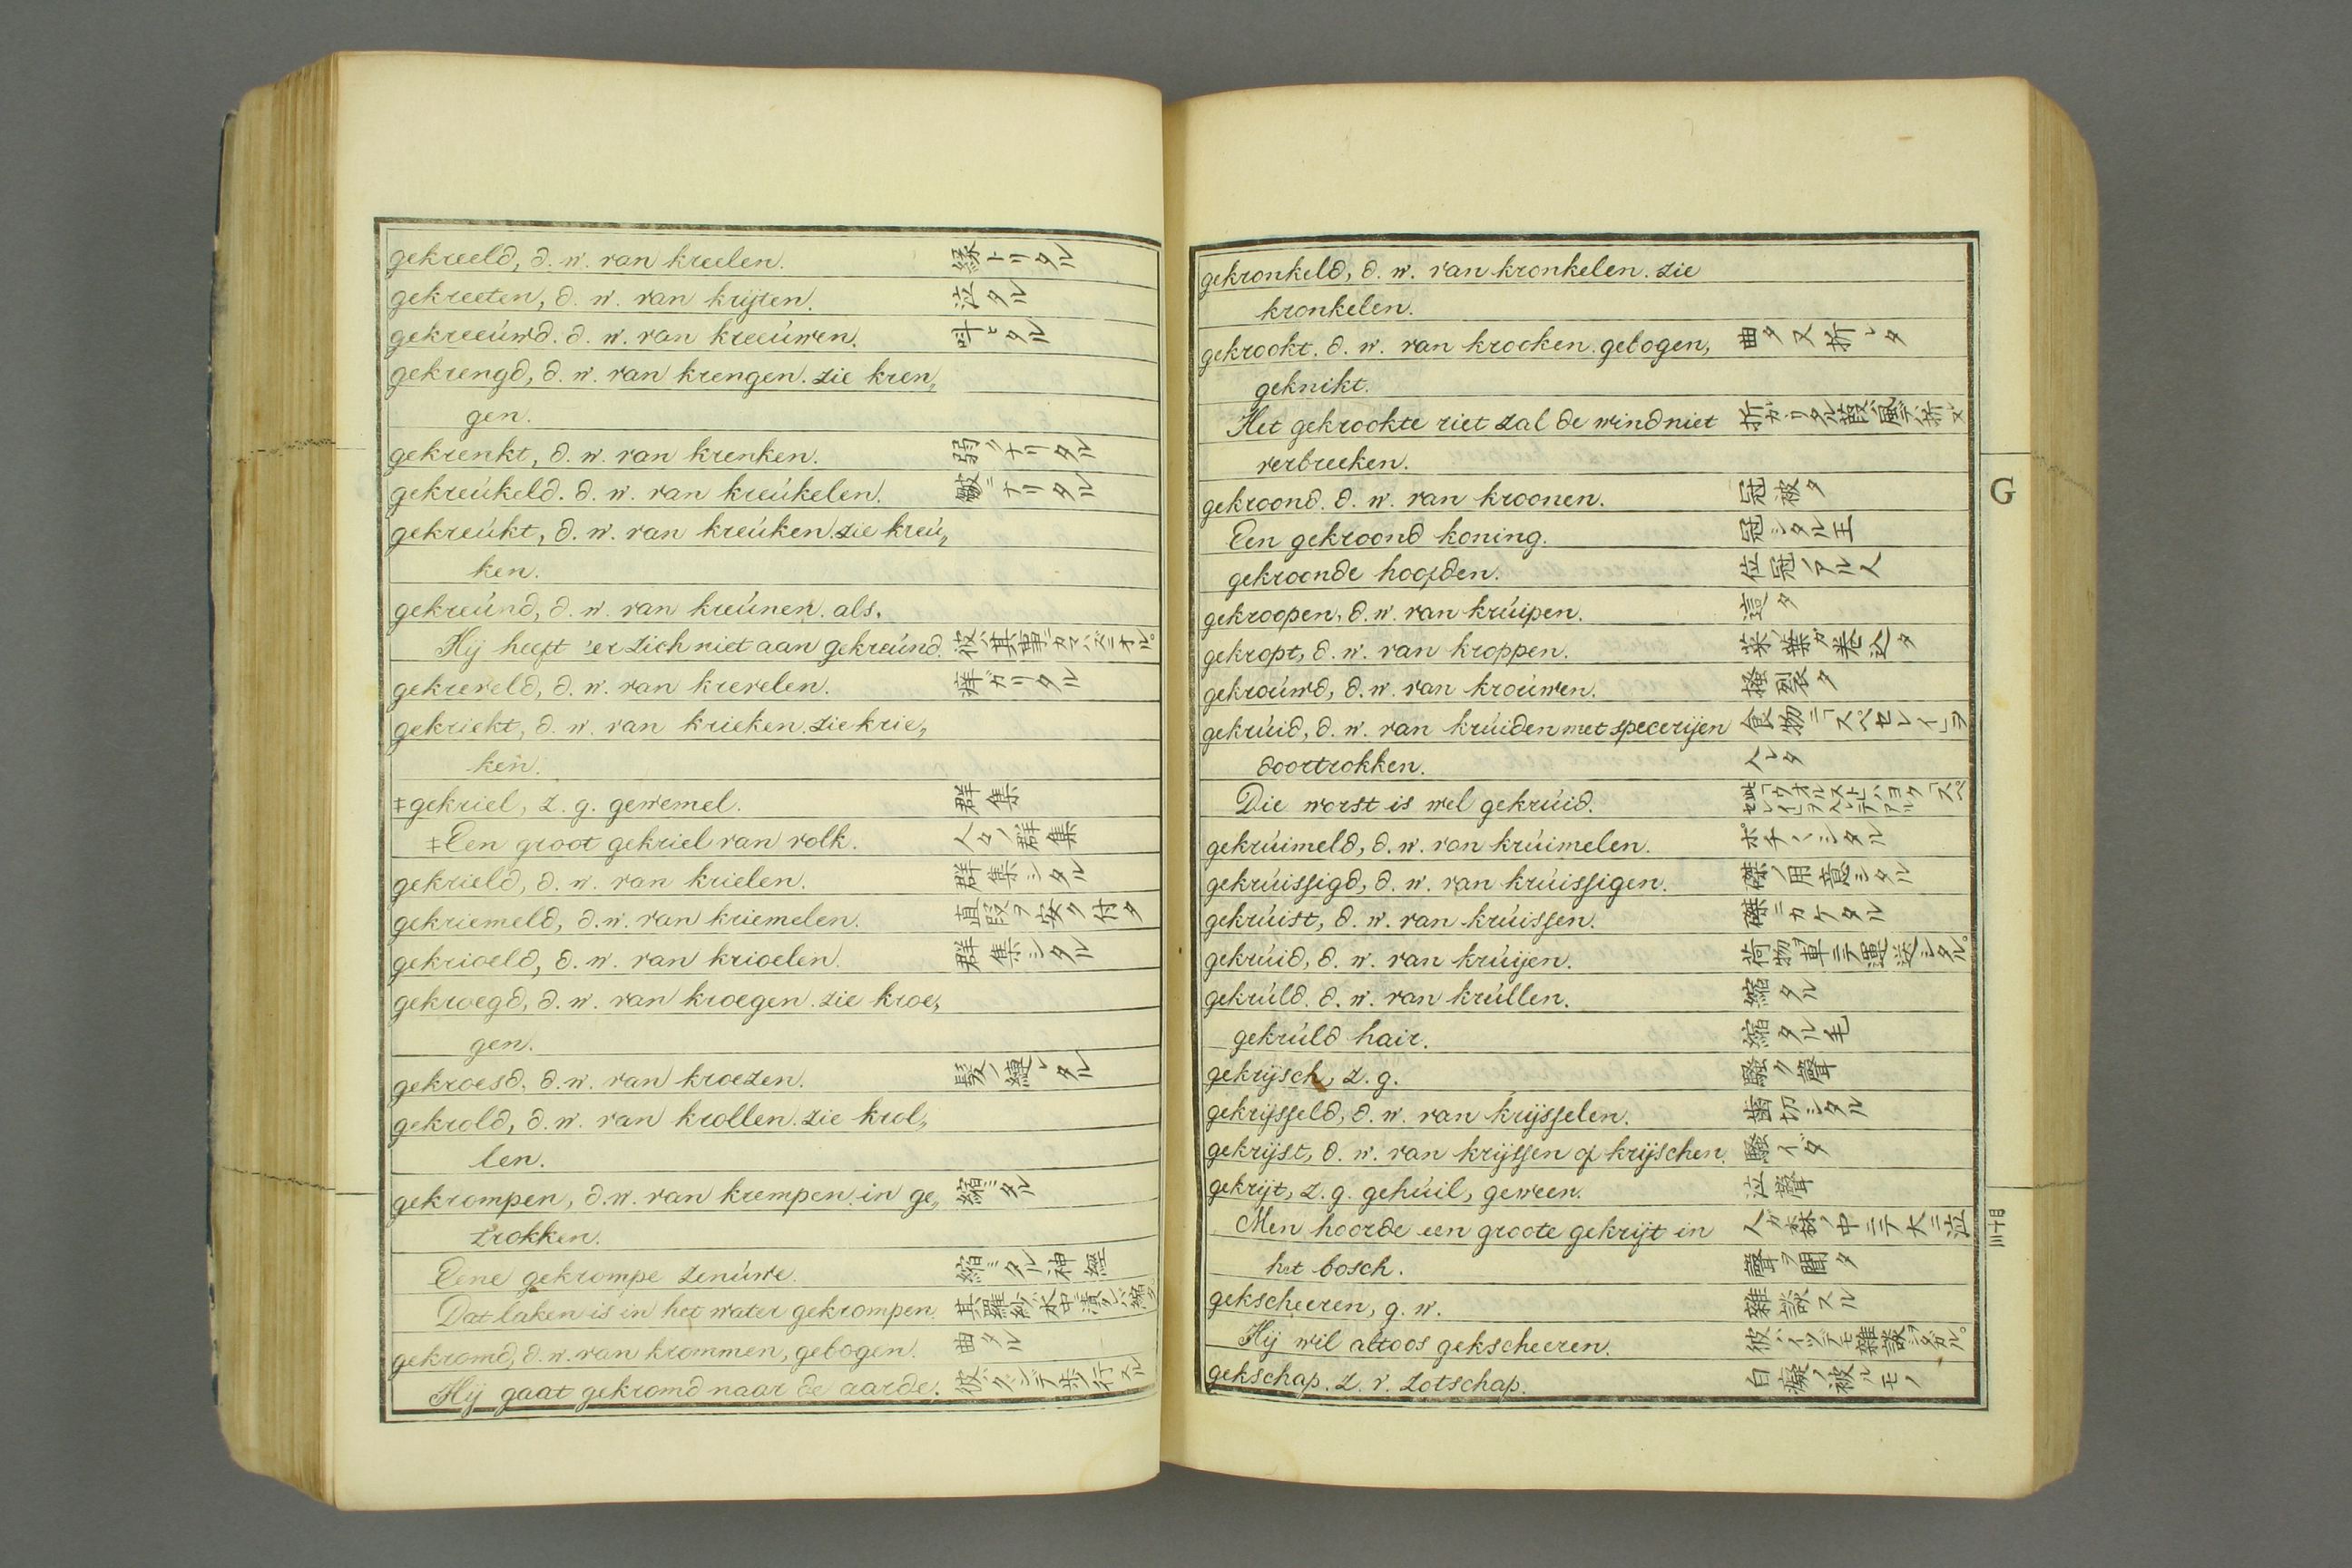 gekreeld, d. w. van kreelen. 縁トリタル
gekreeten, d. w. van krijten. 泣タル
gekreeúwd. d. w. van kreeúwen. 呌ヒタル
gekrengd, d. w. van krengen. zie kren„
gen.
gekrenkt, d. w. van krenken. 弱ナリタル
gekreúkeld. d. w. van kreúkelen. 皺ニナリタル
gekreúkt, d. w. van kreúken. zie kreú„
ken.
gekreúnd, d. w. van kreúnen. als.
Hij heeft 'er zich niet aan gekreúnd. 彼ハ其事ニカマハズニオル。
gekreveld, d. w. van krevelen. 痒ガリタル
gekriekt, d. w. van krieken. zie krie„
ken.
‡gekriel, z. g. gewemel. 群集
‡Een groot gekriel van volk. 人ノ群集
gekrield, d. w. van krielen. 群集シタル
gekriemeld, d. w. van kriemelen. 直段ヲ安ク付タ
gekrioeld, d. w. van krioelen. 群集シタル
gekroegd, d. w. van kroegen. zie kroe„
gen.
gekroesd, d. w. van kroezen. 髪ノ縺レタル
gekrold, d. w. van krollen. zie krol„
len.
gekrompen, d. w. van krempen. in ge„ 縮ミタル
trokken.
Eene gekrompe zenúwe. 縮ミタル神經
Dat laken is in het water gekrompen. 其羅紗ハ水中ニ漬
gekromd, d. w. van krommen, gebogen. 曲タル
Hij gaat gekromd naar de aarde.
gekronkeld, d. w. van kronkelen. zie
kronkelen.
gekrookt. d. w. van krooken. gebogen, 曲タ又折レタ
geknikt.
Het gekrookte riet zal de wind niet 折カヽリタル葭ハ風デ折ヌ
verbreeken.
gekroond. d. w. van kroonen. 冠被タ
Een gekroond koning. 冠シタル王
gekroonde hoofden. 位冠ノアル人
gekroopen, d. w. van krúipen. 這タ
gekropt, d. w. van kroppen. 菜ノ葉ガ巻込タ
gekroúwd, d. w. van kroúwen. 掻裂タ
gekrúid, d. w. van krúiden met specerijen 食物ニ「スペセレイ」ヲ
doortrokken. 入レタ
Die worst is wel gekrúid. 此「ウオルスト」ハヨク「スペセレイ」ヲ入レテアル
gekrúimeld, d. w. van krúimelen.
gekrúissigd, d. w. van krúissigen. 磔ノ用意シタル
gekrúist, d. w. van krúissen. 磔ニカケタル
gekrúid, d. w. van krúijen. 荷物ヲ車ニテ運送シタル。
gekrúld. d. w. van krúllen. 縮タル
gekrúld hair. 縮タル毛
gekrijsch, z. g. 騒ク聲
gekrijsseld, d. w. van krijsselen. 歯切シタル
gekrijst, d. w. van krijssen of krijschen. 騒イダ
gekrijt, z. g. gehúil, geween. 泣聲
Men hoorde een groote gekrijt in 人ガ森ノ中ニテ大ニ泣
het bosch. 聲ヲ聞タ
gekscheeren, g. w. 雜談スル
Hij wil altoos gekscheeren. 彼ハイツデモ雜談ヲシタガル。
gekschap. z. v. zotschap. 白癡ノ被ルモノ
G